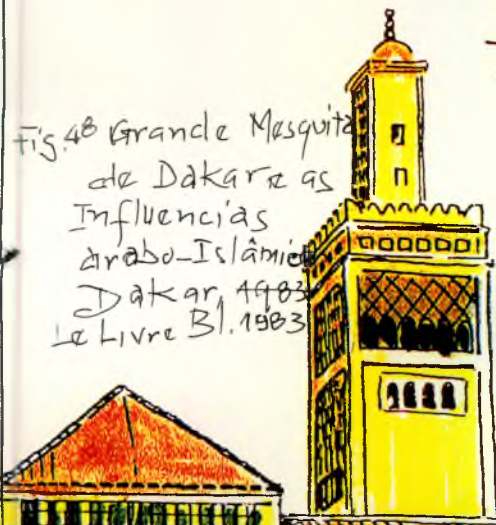 Fig. 48 Grande Mesquita
de Dakar e as
Influencias
arabo-Islâmic
Dakar, 1983
Le Livre Bl. 1983